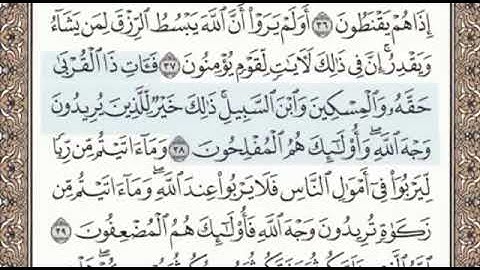 إِذَا هُمْ يَقْنَطُونَ ٣٦ أَوَلَمْ يَرَوْا۟ أَنَّ ٱللَّهَ يَبْسُطُ ٱلرِّزْقَ لِمَن يَشَآءُ
وَيَقْدِرُ ۚ إِنَّ فِى ذَٰلِكَ لَـَٔايَـٰتٍ لِّقَوْمٍ يُؤْمِنُونَ ٣٧ فَـَٔاتِ ذَا ٱلْقُرْبَىٰ
حَقَّهُۥ وَٱلْمِسْكِينَ وَٱبْنَ ٱلسَّبِيلِ ۚ ذَٰلِكَ خَيْرٌ لِّلَّذِينَ يُرِيدُونَ
وَجْهَ ٱللَّهِ ۖ وَأُو۟لَـٰٓئِكَ هُمُ ٱلْمُفْلِحُونَ ٣٨ وَمَآ ءَاتَيْتُم مِّن رِّبًا
لِّيَرْبُوَا۟ فِىٓ أَمْوَٰلِ ٱلنَّاسِ فَلَا يَرْبُوا۟ عِندَ ٱللَّهِ ۖ وَمَآ ءَاتَيْتُم مِّن
زَكَوٰةٍ تُرِيدُونَ وَجْهَ ٱللَّهِ فَأُو۟لَـٰٓئِكَ هُمُ ٱلْمُضْعِفُونَ ٣٩